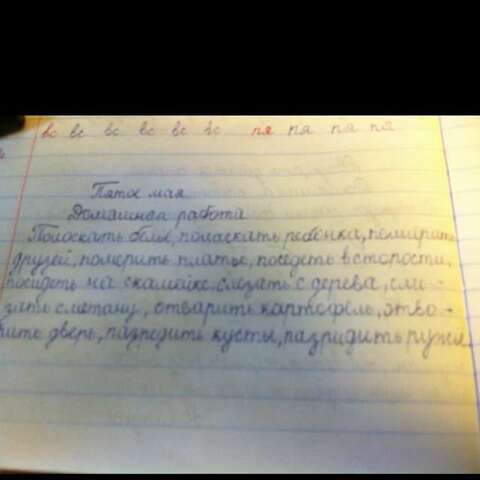 вс вс вс вс вс вс пя пя пя пя
Пятое мая
Домашная работа
Полоскать бельё, поласкать ребёнка, помирить
друзей, померить платье, поседеть в старости,
посидеть на скамейке, слезать с дерева, сли-
зать сметану, отварить картофель, отво-
рить дверь, разредить кусты, разридить ружьё